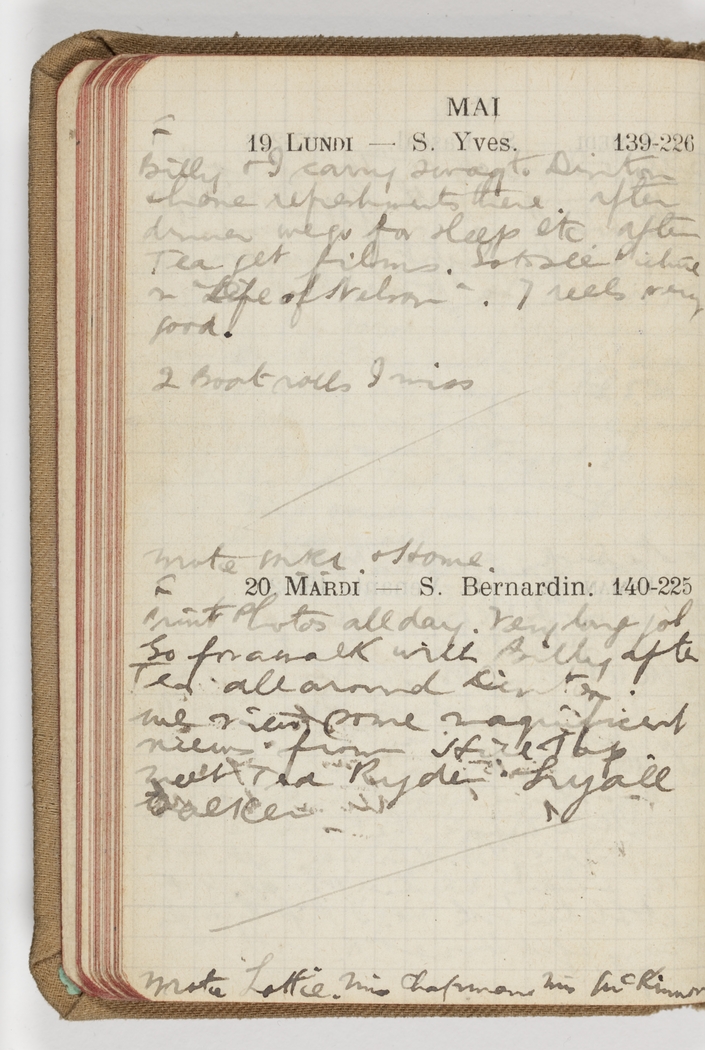 MAI
F
19 LUNDI — S. Yves. 139-226
Billy & I carry swag to Dinton
& have refreshments there. After
dinner we go for sleep etc after
Tea get films. Go & see Picture
"Life of Nelson". 7 reels very
good.
2 Boat rolls I miss
wrote & Home.
F
20 MARDI — S. Bernardin. 140-225
Print Photos all day. Very long job
Go for a walk with Billy after
Tea all around Dinton.
we view some magnificent
views from Hill Top
meet Ted Ryder Lyall
Walker
Wrote Lottie. Mrs Chapman Mrs McKinnon